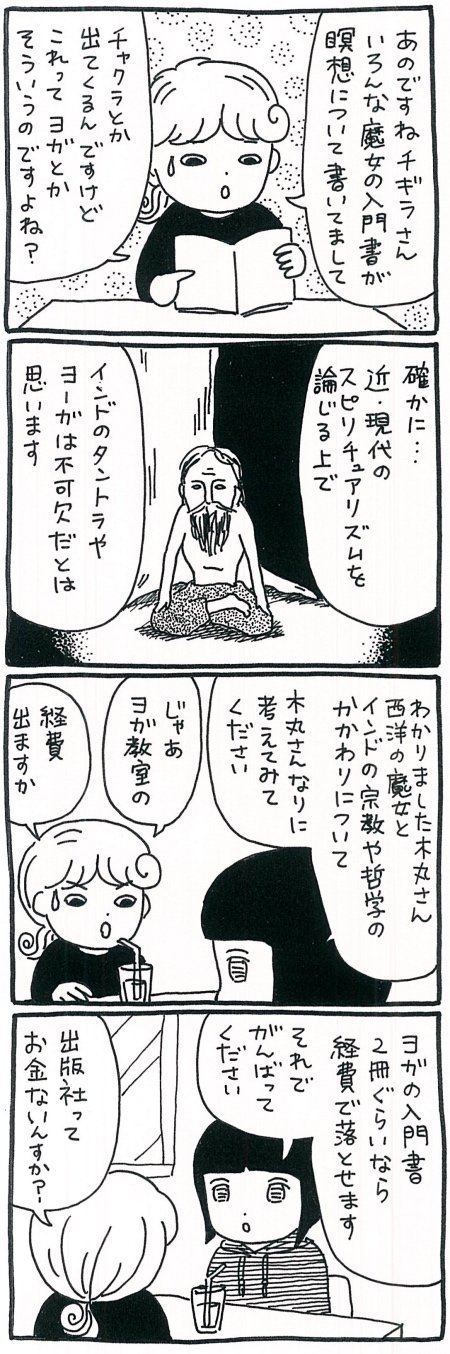 あのですね チギラさん
いろんな魔女の入門書が
瞑想について 書いてまして
チャクラとか
出てくるんですけど
これって ヨガとか
そういうの ですよね?
確かに…
近・現代の
スピリチュアリズムを
論じる上で
インドのタントラや
ヨーガは不可欠だとは
思います
わかりました木丸さん
西洋の魔女と
インドの宗教や哲学の
かかわりについて
木丸さんなりに
考えてみて
ください
じゃあ
ヨガ教室の
経費
出ますか
ヨガの入門書
2冊ぐらいなら
経費で落とせます
それで
がんばって
ください
出版社って
お金ないんすか?